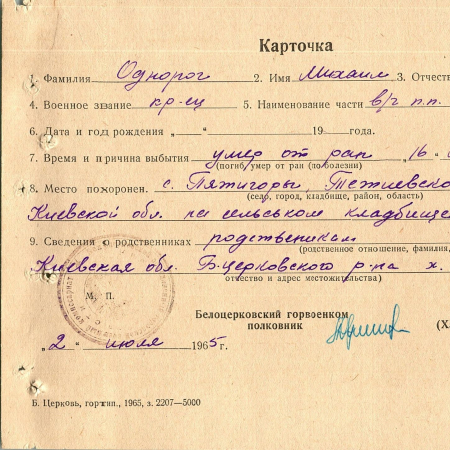 Карточка
1. Фамилия Однорог 2. Имя Михаил 3. Отчество
4. Военное звание кр-ец 5. Наименование части в/ч п.п.
6. Дата и год рождения „ “ 19 года.
7. Время и причина выбытия умер от ран „16
(погиб, умер от ран (по болезни)
8. Место похоронен. с. Пятигоры, Тетиевско
(село, город, кладбище, район, область)
Киевской обл. на сельском кладбище
9. Сведения о родственниках родственикам
(родственное отношение, фамилия,
Киевская обл. Б-церковского р-на х.
отчество и адрес местожительства)
М. П.
Белоцерковский горвоенком
полковник (Х
„2 июля 1965г.
Б. Церковь, гортип., 1965, з. 2207—5000